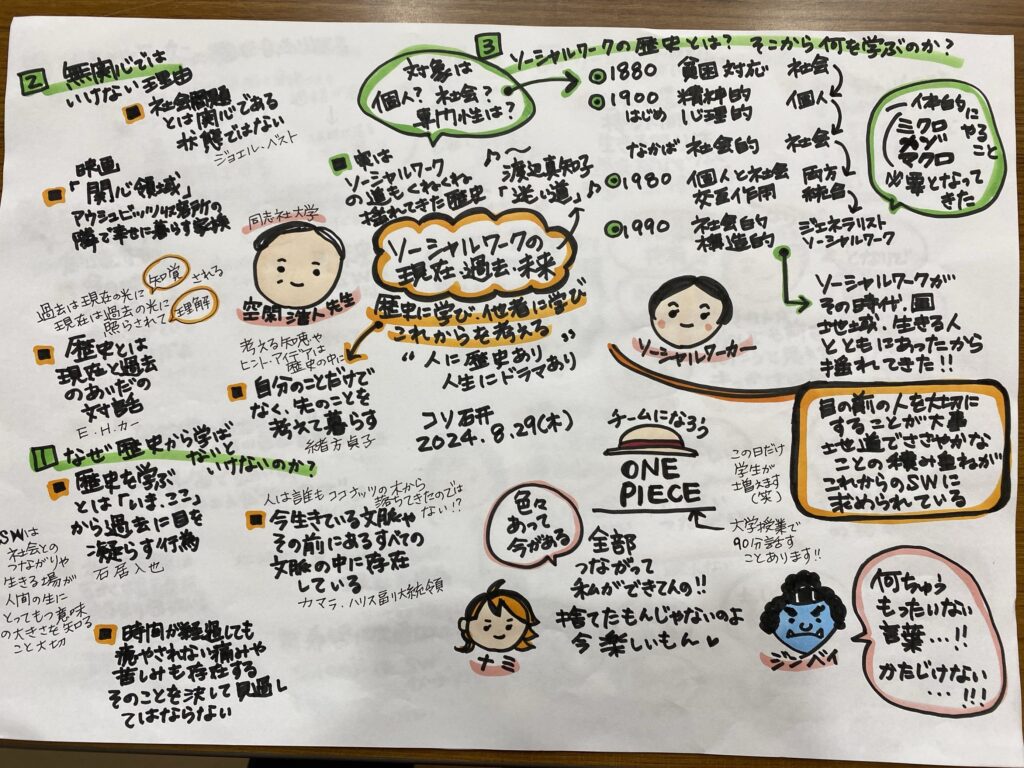 2 無関心では
いけない理由
社会問題
とは関心である
状態ではない
ジョエル・ベスト
映画
「関心領域」
アウシュビッツ収容所の
隣で幸せに暮らす家族
過去は現在の光に知覚される
現在は過去の光に
照らされて理解
歴史とは
現在と過去
のあいだの
対話
E.H.カー
1 なぜ歴史から学ば
ないと
いけないのか?
歴史を学ぶ
とは「いま、ここ」
から過去に目を
凝らす行為
石居人也
SWは
社会との
つながりや
生きる場が
人間の生に
とってもつ意味
の大きさを知る
こと大切
時間が経過しても
癒やされない痛みや
苦しみも存在する
そのことを決して見過し
てはならない
対象は
個人?社会?
専門性は?
実は
ソーシャルワーク
の道もくねくね
揺れてきた歴史
渡辺真知子
「迷い道」
同志社大学
空閑浩人先生
ソーシャルワークの
現在・過去・未来
歴史に学び・他者に学び
これからを考える
"人に歴史あり
人生にドラマあり"
コソ研
2024.8.29(木)
考える知恵や
ヒント・アイデアは
歴史の中に
自分のことだけで
なく、先のことを
考えて暮らす
緒方貞子
人は誰もココナッツの木から
落ちてきたのでは
ない!?
今生きている文脈や
その前にあるすべての
文脈の中に存在
している
カマラ・ハリス副大統領
3 ソーシャルワークの歴史とは? そこから何を学ぶのか?
1880 貧困対応 社会
1900 精神的 個人
はじめ 心理的
なかば 社会的 社会
1980 個人と社会 両方
交互作用 統合
1990 社会的 ジェネラリスト
構造的 ソーシャルワーク
一体的に
ミクロ やる
メゾ こと
マクロ
必要となって
きた
ソーシャルワークが
その時代、国
地域、生きる人
とともにあったから
揺れてきた!!
ソーシャルワーカー
目の前の人を大切に
することが大事
地道でささやかな
ことの積み重ねが
これからのSWに
求められている
チームになろう
ONE
PIECE
この日だけ
学生が
増えます
(笑)
大学授業で
90分話す
ことあります!!
色々
あって
今がある
ナミ
全部
つながって
私ができてんの!!
捨てたもんじゃないのよ
今楽しいもん
ジンベイ
何ちゅう
もったいない
言葉…!!
かたじけない
…!!!